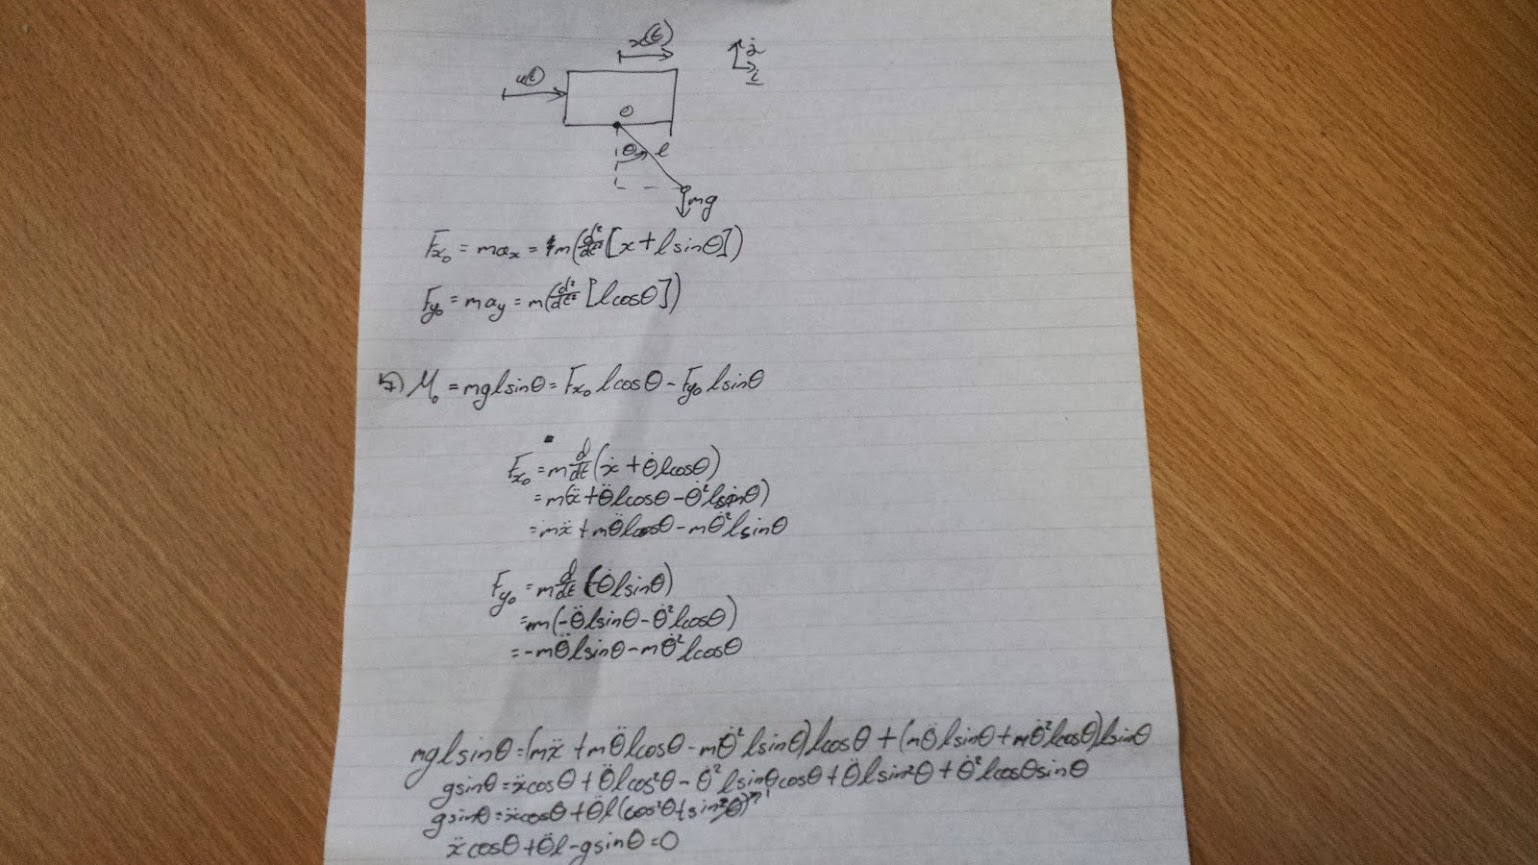 x(t)
j
i
u(t)
O
θ l
mg
Fx₀ = maₓ = m(d²/dt² [x + l sinθ])
Fy₀ = ma_y = m(d²/dt² [l cosθ])
M₀ = mgl sinθ = Fx₀ l cosθ - Fy₀ l sinθ
Fx₀ = m d/dt (ẋ + θ̇ l cosθ)
= m(ẍ + θ̈ l cosθ - θ̇² l sinθ)
= mẍ + mθ̈ l cosθ - mθ̇² l sinθ
Fy₀ = m d/dt (-θ̇ l sinθ)
= m(-θ̈ l sinθ - θ̇² l cosθ)
= -mθ̈ l sinθ - mθ̇² l cosθ
mgl sinθ = (mẍ + mθ̈ l cosθ - mθ̇² l sinθ) l cosθ + (mθ̈ l sinθ + mθ̇² l cosθ) l sinθ
g sinθ = ẍ cosθ + θ̈ l cos²θ - θ̇² l sinθ cosθ + θ̈ l sin²θ + θ̇² l cosθ sinθ
g sinθ = ẍ cosθ + θ̈ l (cos²θ + sin²θ) 1
ẍ cosθ + θ̈ l - g sinθ = 0